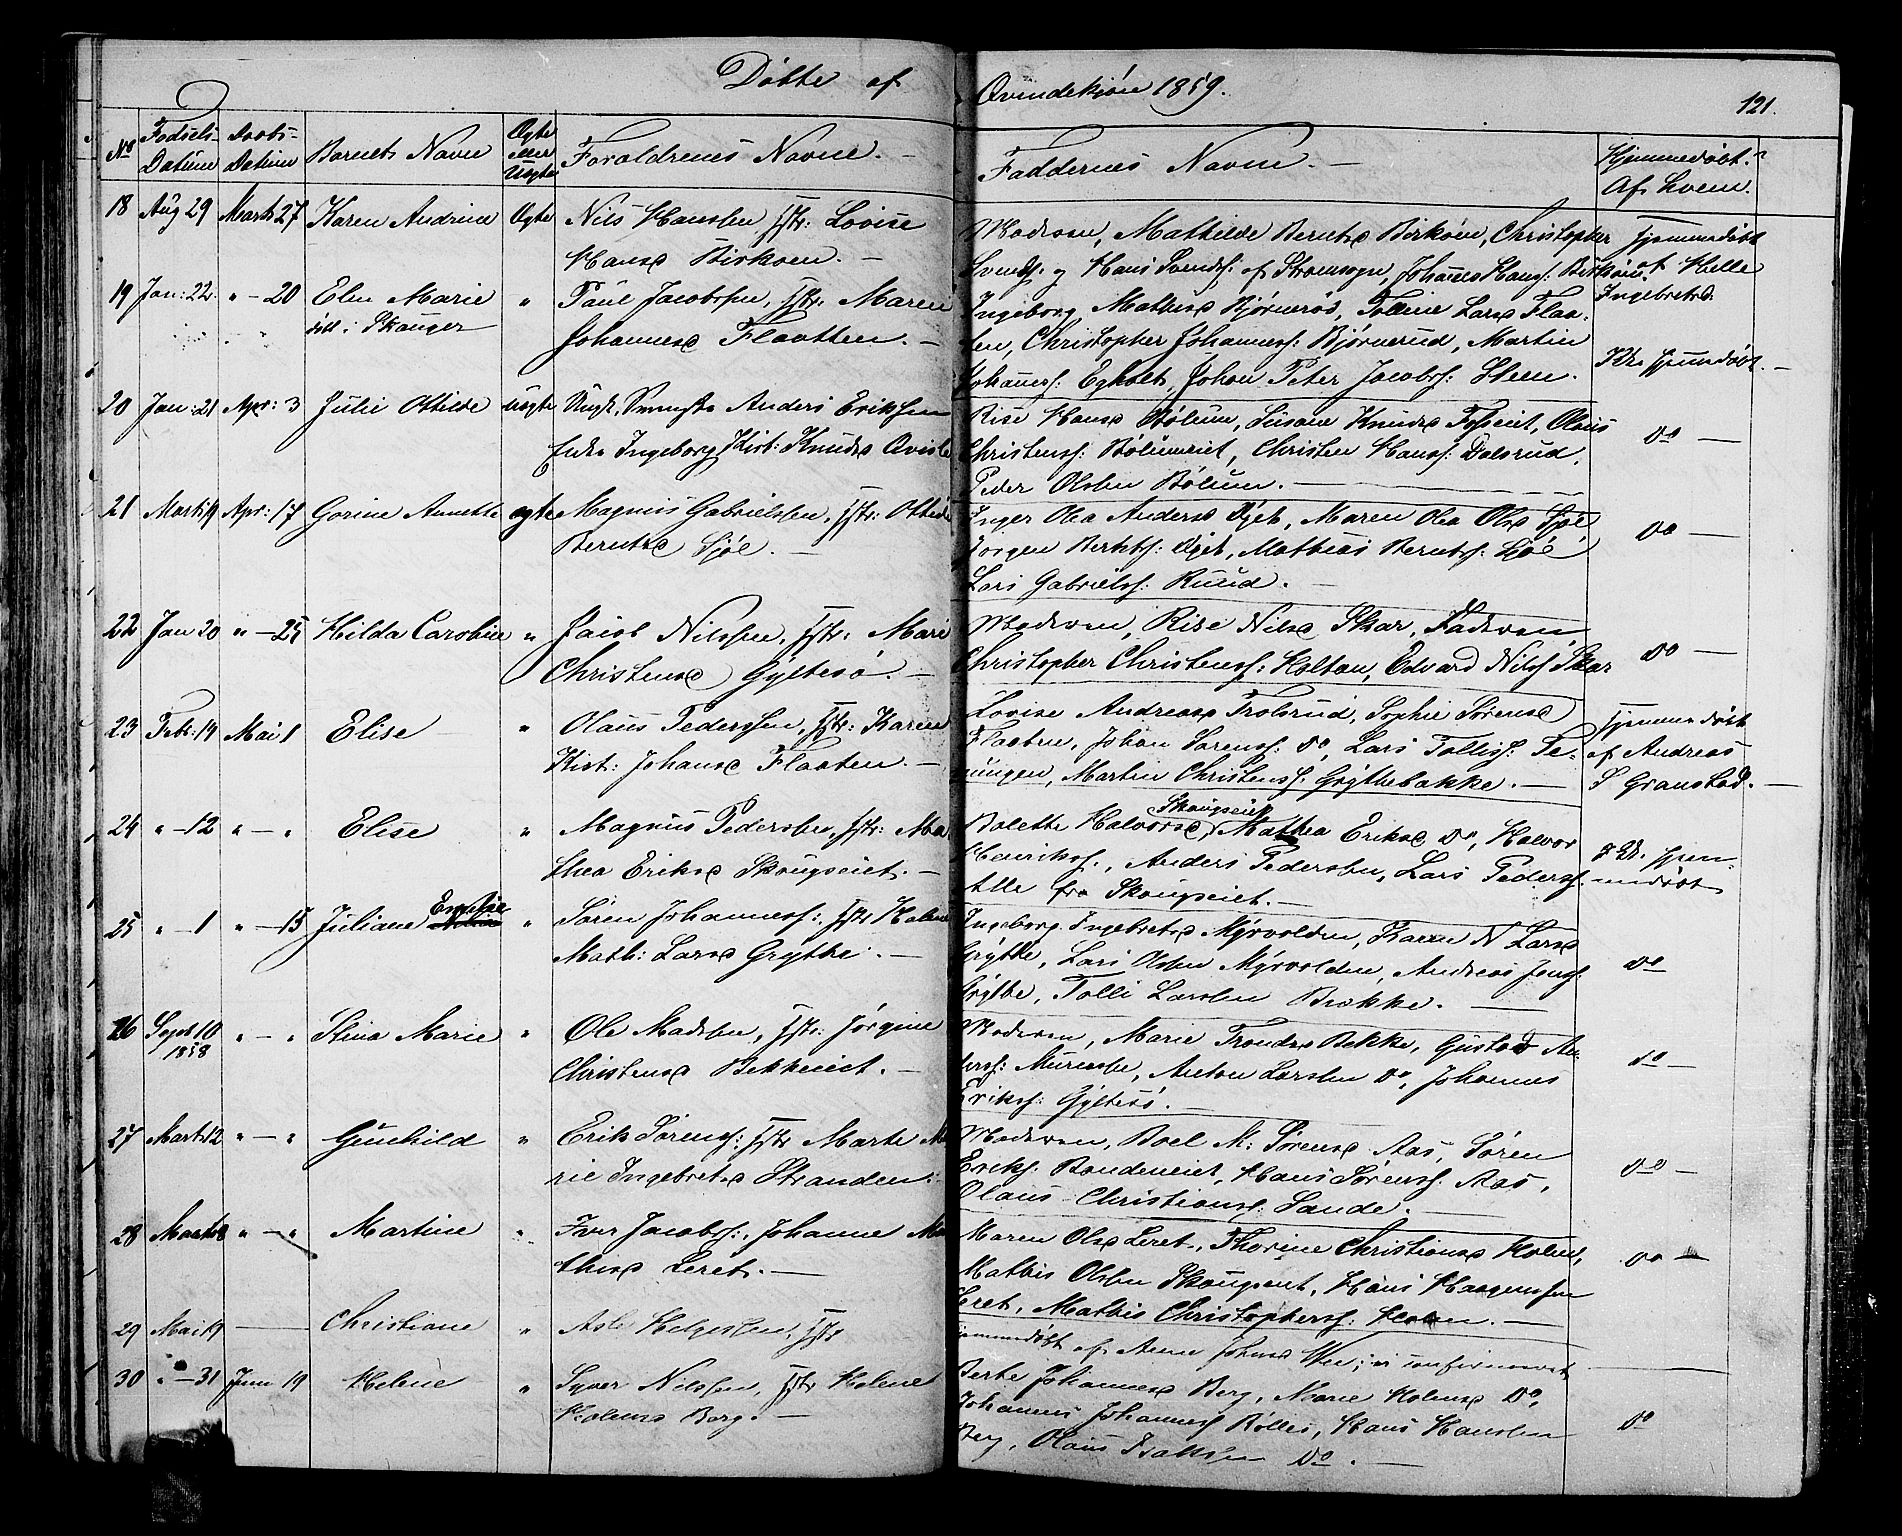 Döbte af Qvindekjön 1859.
121.
No Födsels-Datum Daabs-Datum Barnets Navn Ægte eller Uægte Forældrenes Navne. — Faddernes Navne. — Hjemmedöbt? Af hvem.
18 Aug 29 Marts 27 Karen Andrine Ægte Nils Hanssen, Hstr: Lovise
Hansd Birkoen. —
Moderen, Mathilde Berntsd Birköen, Christopher
Svends: og Hans Svends: af Strömsogn, Johannes Hanss: Birköen.
Hjemmedöbt
af Helle
Ingebretsd.
19 Jan: 22. " — 20 Elen Marie
död i Skouger
" Paul Jacobssen, Hstr: Maren
Johannesd Flaatten. —
Ingeborg Mathisd Björneröd, Toline Larsd Flaa-
ten, Christopher Johanness: Björnerud, Martin
Johanss: Egholt, Johan Peter Jacobs: Steen.
Ikke hjemmedöbt. —
20 Jan: 21 Apr: 3 Julie Ottilde uægte Ungk. Svenske Anders Eriksen
Enke Ingeborg Kirst: Knudsd Qvisle
Rise Hansd Bölum, Susane Knudsd Fosseiet, Olaus
Christenss: Bölumeiet, Christen Hanss: Dalsrud,
Peder Olsen Bölum. —
Do —
21 Marts 19 Apr: 17 Gorine Annette ægte Magnus Gabrielssen, Hstr: Ottide
Berntsd Sjöl. —
Inger Olea Andersd Öjet, Maren Olea Olsd Sjöl
Jörgen Berntss: Öjet, Mathias Bernts: Sjöl
Lars Gabrielss: Ruud. —
Do —
22 Jan 20 " — 25 Hilda Caroline " Jacob Nilssen, Hstr: Mari
Christensd Gyltesö. —
Moderen, Rise Nilsd Skar, Faderen
Christopher Christenss: Holtan, Edvard Nilss Skar
Do —
23 Febr: 14 Mai 1 Elise " Olaus Pederssen, Hstr: Karen
Kirst: Johansd Flaaten. —
Lovise Andreasd Trolsrud, Sophie Sörensd
Flaaten, Johan Sörenss: Do, Lars Tolliss: Te-
nungen, Martin Christenss: Gryttebakke. —
Hjemmedöbt
af Andreas
S Granstad. —
24 " — 12 " — " Elise " Magnus Pederssen, Hstr: Ma
thea Eriksd Skougseiet. —
Skougseiet
Bolette Halvorsd, Mathea Eriksd Do, Halvor
Henrikss:, Anders Pederssen, Lars Pederss:
Alle fra Skougseiet. —
Ik. hjem-
medöbt
25 " — 1 " — 15 Juliane Emelie " Sören Johanness: Hstr Helene
Math: Larsd Grytte. —
Ingeborg Ingebretsd Myrvolden, Karen N Larsd
Grytte, Lars Olssen Myrvolden, Andreas Jens:
Grytte, Tolli Larssen Brekke. —
Do
26 Septb 10 1858 " — " Stina Marie " Ole Madssen, Hstr: Jörgine
Christensd Bekkeiet. —
Moderen, Marie Trondsd Bekke, Gustav An-
derss: Murmestr, Anton Larssen Do, Johannes
Erikss: Gyltesö. —
Do —
27 Marts 12 " — " Gunhild " Erik Sörenss: Hstr Marte Ma
rie Ingebretsd Stranden:
Moderen, Boel M: Sörensd Aas, Sören
Erikss: Bondeneiet, Hans Sörenss: Aas,
Olaus Christianss: Sande. —
Do —
28 Marts " — " Martine " Iver Jacobss:, Johanne Ma
thisd Leret. —
Maren Olsd Leret, Thorine Christiansd Holm,
Mathis Olssen Skougseiet, Hans Haagenssen
Leret, Mathis Christopherss: Holmen. —
Do —
29 Mai 19 — Christiane " Asle Helgessen, Hstr
Hjemmedöbt af Anne Johnsd Wen; ei confirmeret
30 " — 31 Juni 19 Helene " Syver Nilssen, Hstr Helene
Holensd Berg. —
Berte Johannesd Berg, Marie Holensd Do,
Johannes Johanness Bölles, Hans Hanssen
Berg, Olaus Isakssen Do. —
Do